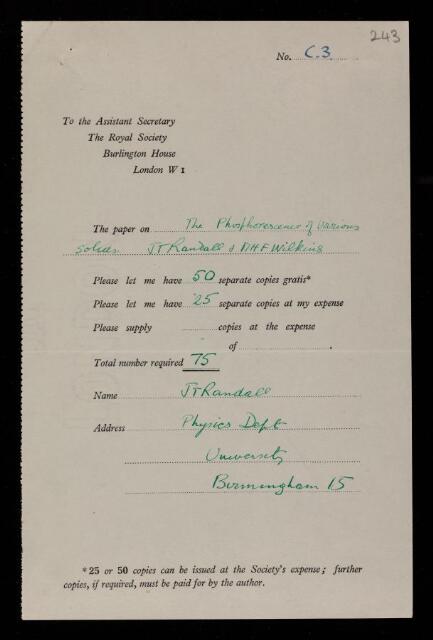 243
No. C.3
To the Assistant Secretary
The Royal Society
Burlington House
London W 1
The paper on The Phosphorescence of various
solids JT Randall & MHF Wilkins
Please let me have 50 separate copies gratis*
Please let me have 25 separate copies at my expense
Please supply copies at the expense
of .
Total number required 75
Name JT Randall
Address Physics Dept
University
Birmingham 15
* 25 or 50 copies can be issued at the Society's expense; further
copies, if required, must be paid for by the author.